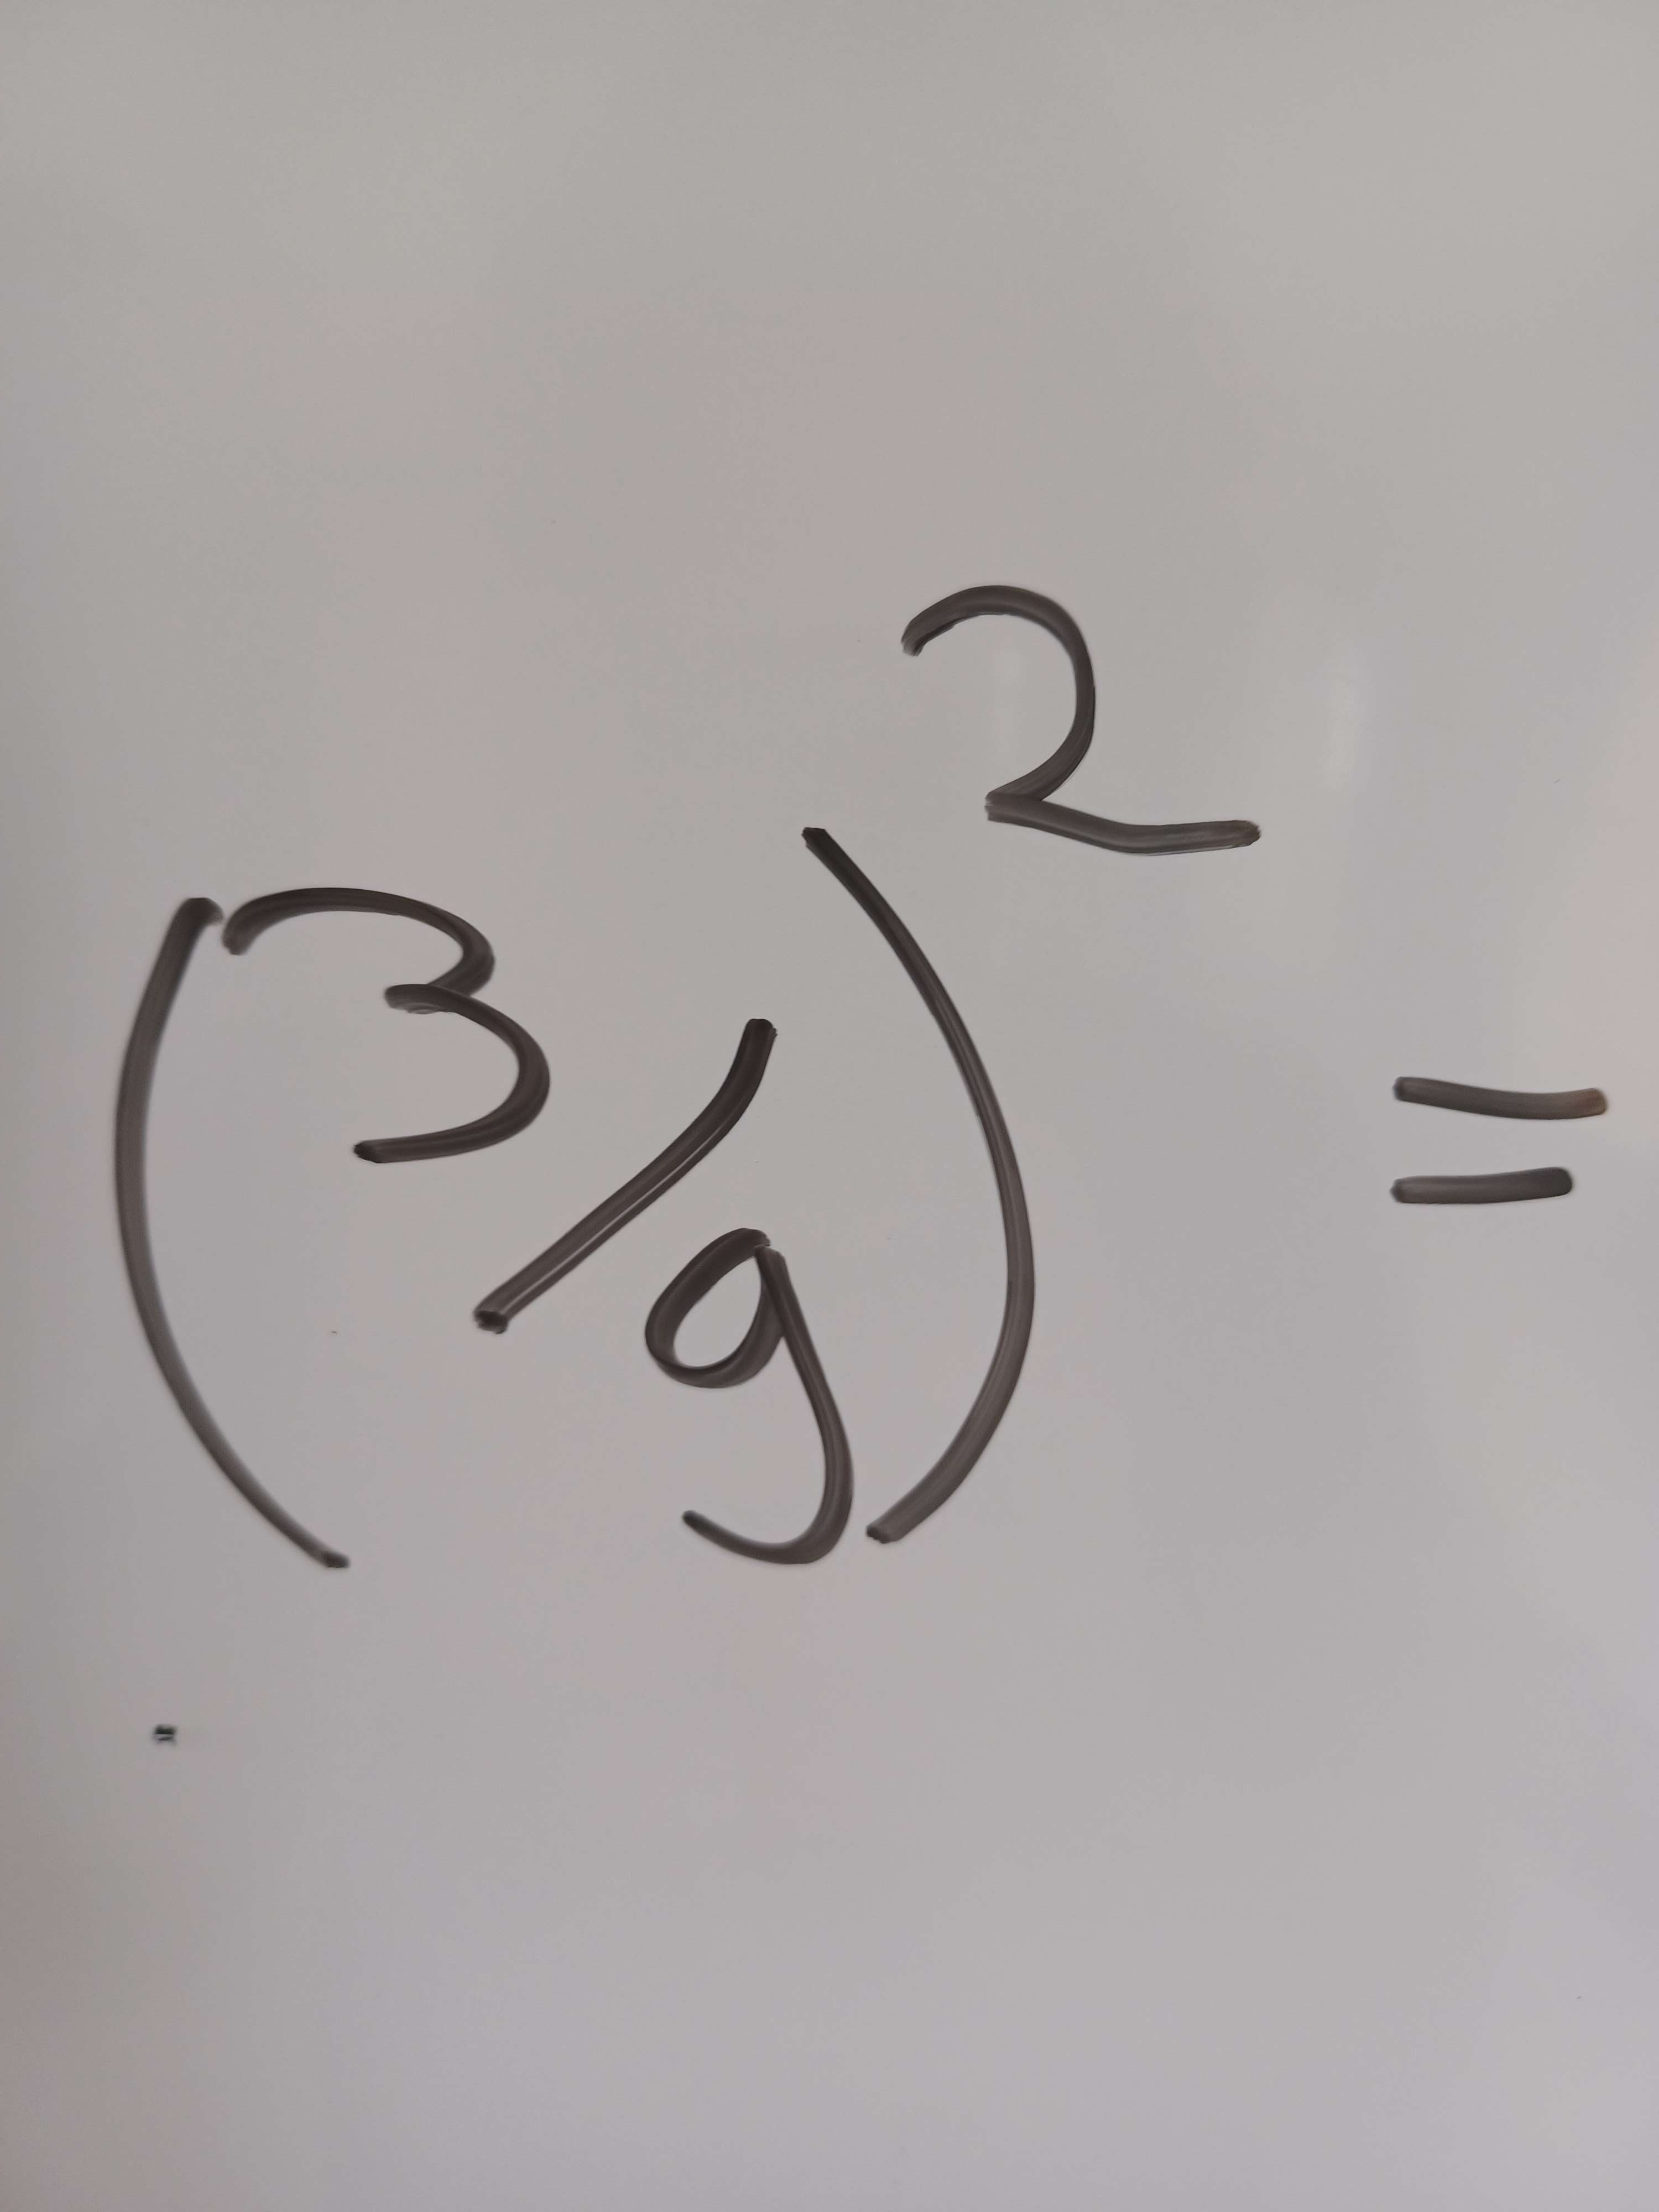 (3/9)² =